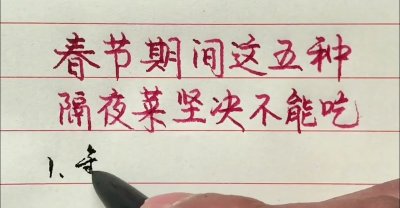 春节期间这五种
隔夜菜坚决不能吃
1、